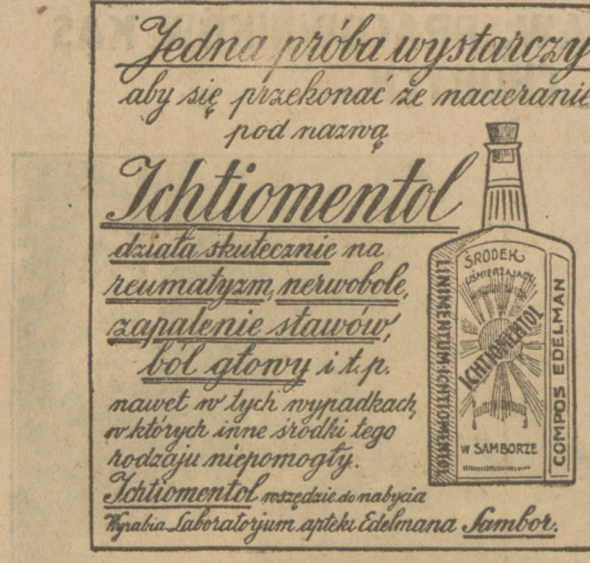 Jedna próba wystarczy
aby się przekonać że nacieranie
pod nazwą
Ichtiomentol
działa skutecznie na
reumatyzm, nerwobole,
zapalenie stawów,
ból głowy i t.p.
nawet w tych wypadkach,
w których inne środki tego
rodzaju niepomogły.
Ichtiomentol wszędzie do nabycia
Wyrabia Laboratorjum apteki Edelmana Sambor.
ŚRODEK
UŚMIERZAJĄCY
ICHTIOMENTOL
W SAMBORZE
LINIMENTUM ICHTIOMENTOL
COMPOS EDELMAN